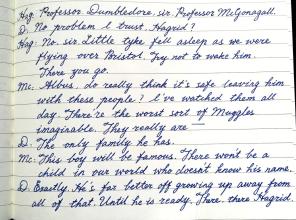 Hag: Professor Dumbledore, sir. Professor McGonagall.
D. No problem I trust, Hagrid?
Hag: No, sir. Little tyke fell asleep as we were
flying over Bristol. Try not to wake him.
There you go.
Mc: Albus, do really think it's safe leaving him
with these people? I've watched them all
day. There're the worst sort of Muggles
imaginable. They really are —
D: The only family he has.
Mc: This boy will be famous. There won't be a
child in our world who doesn't know his name.
D: Exactly. He's far better off growing up away from
all of that. Until he is ready. There, there Hagrid.